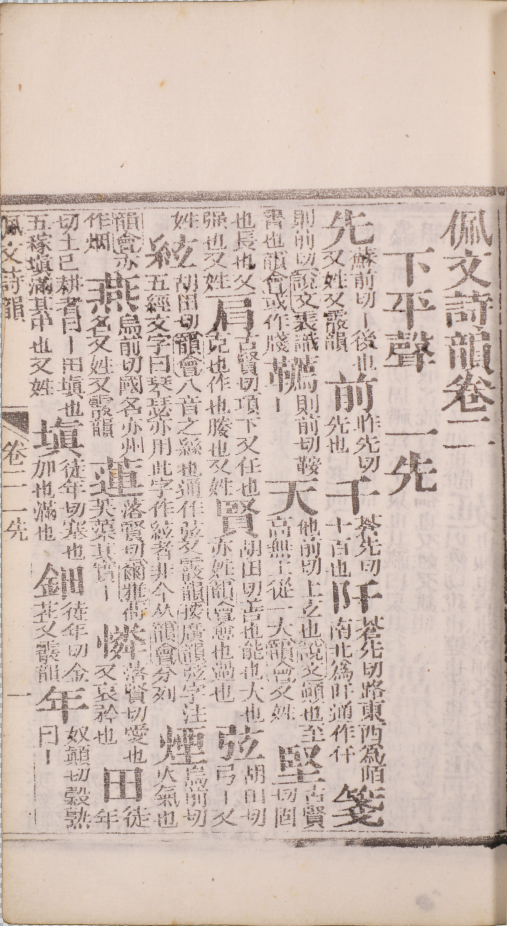 佩文詩韻卷二
下平聲 一先
先蘇前切丨後也又姓又霰韻前昨先切先也千蒼先切十百也阡蒼先切路東西為陌南北為阡通作仟箋
則前切說文表識書也韻會或作牋韉則前切鞍丨天他前切上玄也說文顚也至高無上從一大韻會又姓堅古賢切固
也長也又强也又姓肩古賢切項下又任也克也作也勝也又姓賢胡田切善也能也大也亦姓韻會愈也過也弦胡田切弓丨又
姓絃胡田切韻會八音之絲也通作弦又霰韻按廣韻弦字注五經文字曰琴瑟亦用此字作絃者非今从韻會分列煙烏前切火氣也
韻會亦作烟燕烏前切國名亦州名又姓又霰韻蓮落賢切爾雅荷芙蕖其實丨憐落賢切愛也又哀矜也田徒年
切土已耕者曰丨田塡也五稼塡滿其中也又姓塡徒年切塞也加也滿也鈿徒年切金花又霰韻年奴顚切穀熟曰丨
佩文詩韻 卷二 一先 一